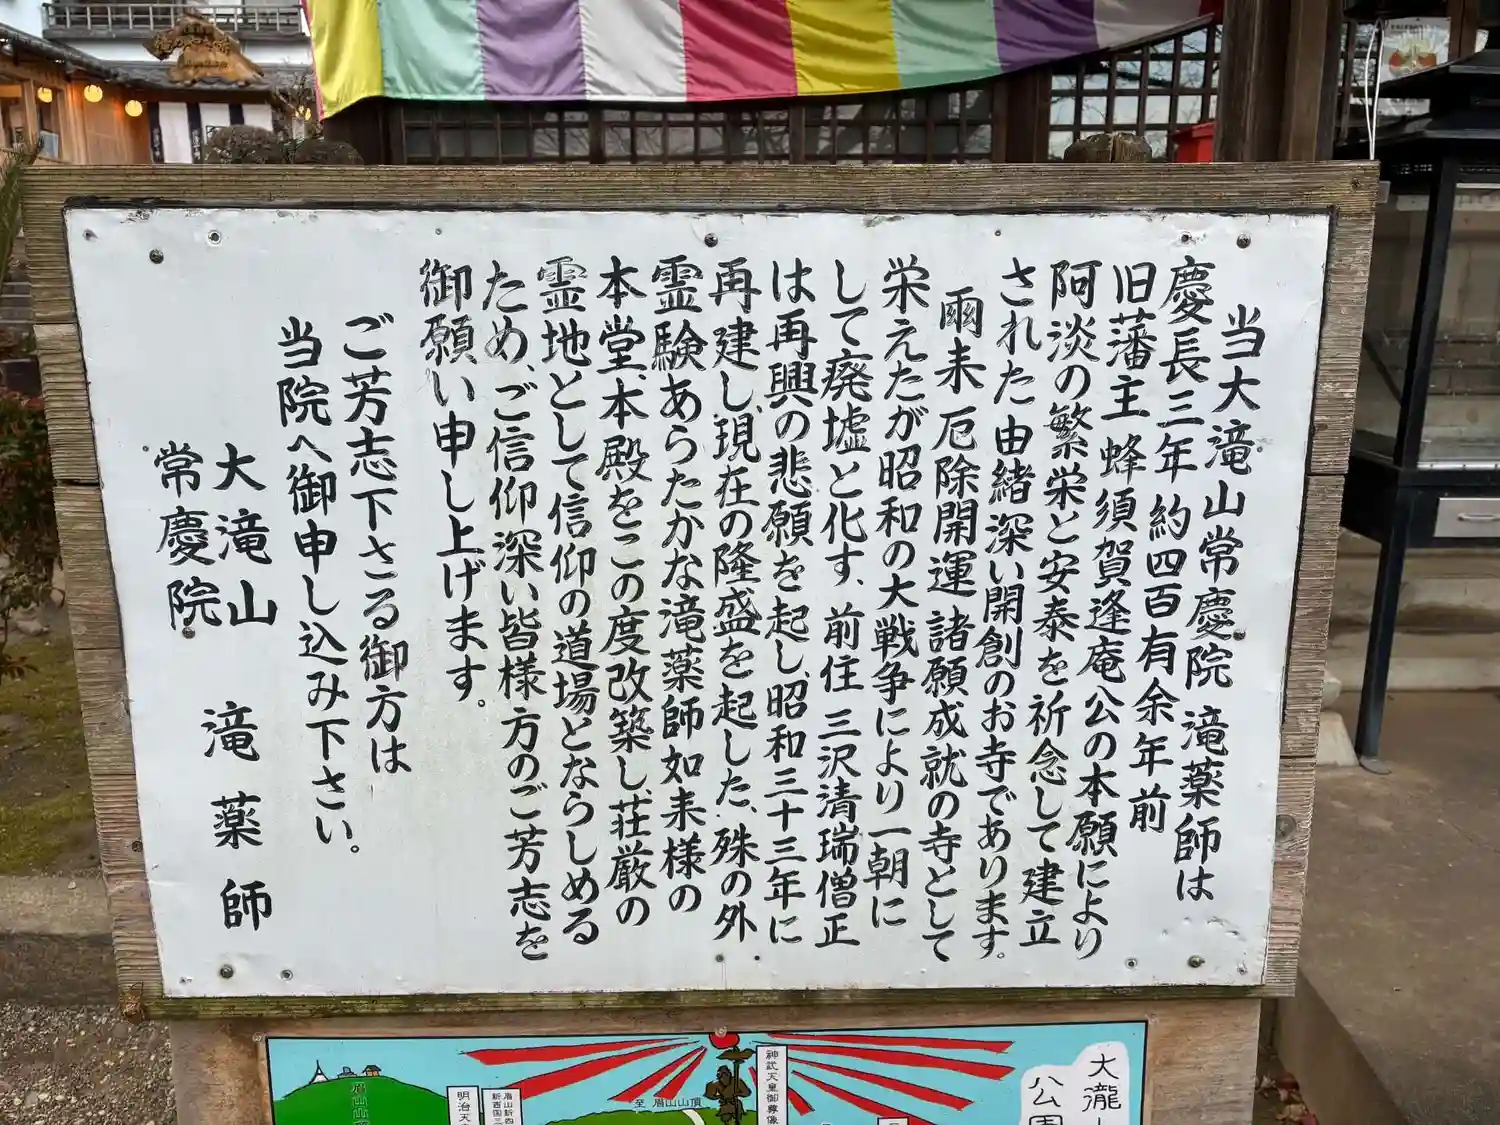 当大滝山常慶院 滝薬師は
慶長三年約四百有余年前
旧藩主 蜂須賀逢庵公の本願により
阿淡の繁栄と安泰を祈念して建立
された由緒深い開創のお寺であります。
爾来 厄除開運 諸願成就の寺として
栄えたが昭和の大戦争により一朝に
して廃墟と化す、前住 三沢清瑞僧正
は再興の悲願を起し、昭和三十三年に
再建し、現在の隆盛を起した、殊の外
霊験あらたかな滝薬師如来様の
本堂、本殿をこの度改築し、荘厳の
霊地として信仰の道場とならしめる
ため、ご信仰深い皆様方のご芳志を
御願い申し上げます。
ご芳志下さる御方は
当院へ御申し込み下さい。
大滝山 滝薬師
常慶院
大瀧
公園
神武天皇御尊像
至 眉山山頂
眉山
明治天